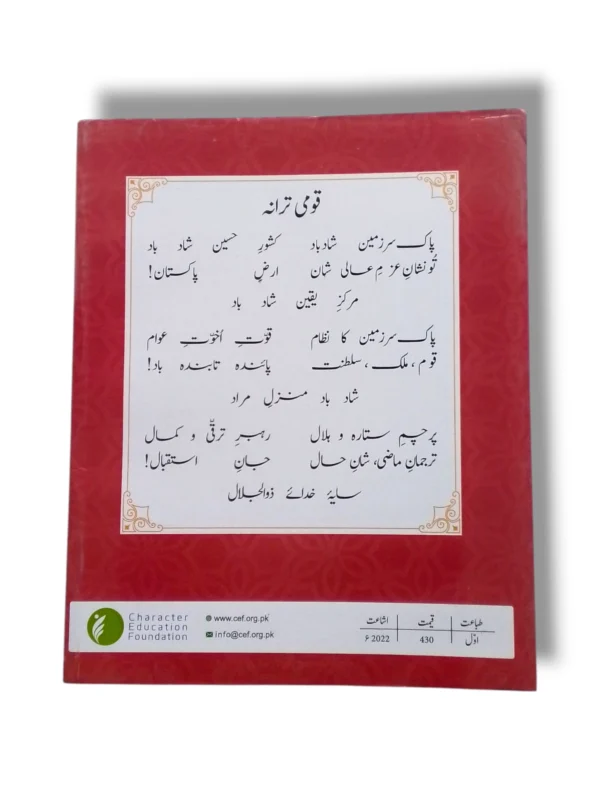 قومی ترانہ
پاک سرزمین شاد باد کشورِ حسین شاد باد
تُو نشانِ عزمِ عالی شان ارضِ پاکستان!
مرکزِ یقین شاد باد
پاک سرزمین کا نظام قوّتِ اُخوّتِ عوام
قوم، ملک، سلطنت پائندہ تابندہ باد!
شاد باد منزلِ مراد
پرچمِ ستارہ و ہلال رہبرِ ترقّی و کمال
ترجمانِ ماضی، شانِ حال جانِ استقبال!
سایۂ خدائے ذوالجلال
Character
Education
Foundation
www.cef.org.pk
info@cef.org.pk
طباعت قیمت اشاعت
اوّل 430 2022ء